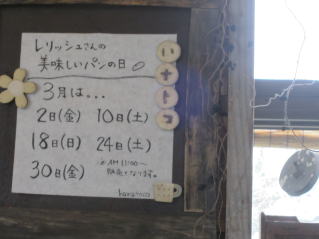 レリッシュさんの
美味しいパンの日
3月は...
2日(金) 10日(土)
18日(日) 24日(土)
30日(金)
※AM 11:00〜
販売となります。
いナトコ